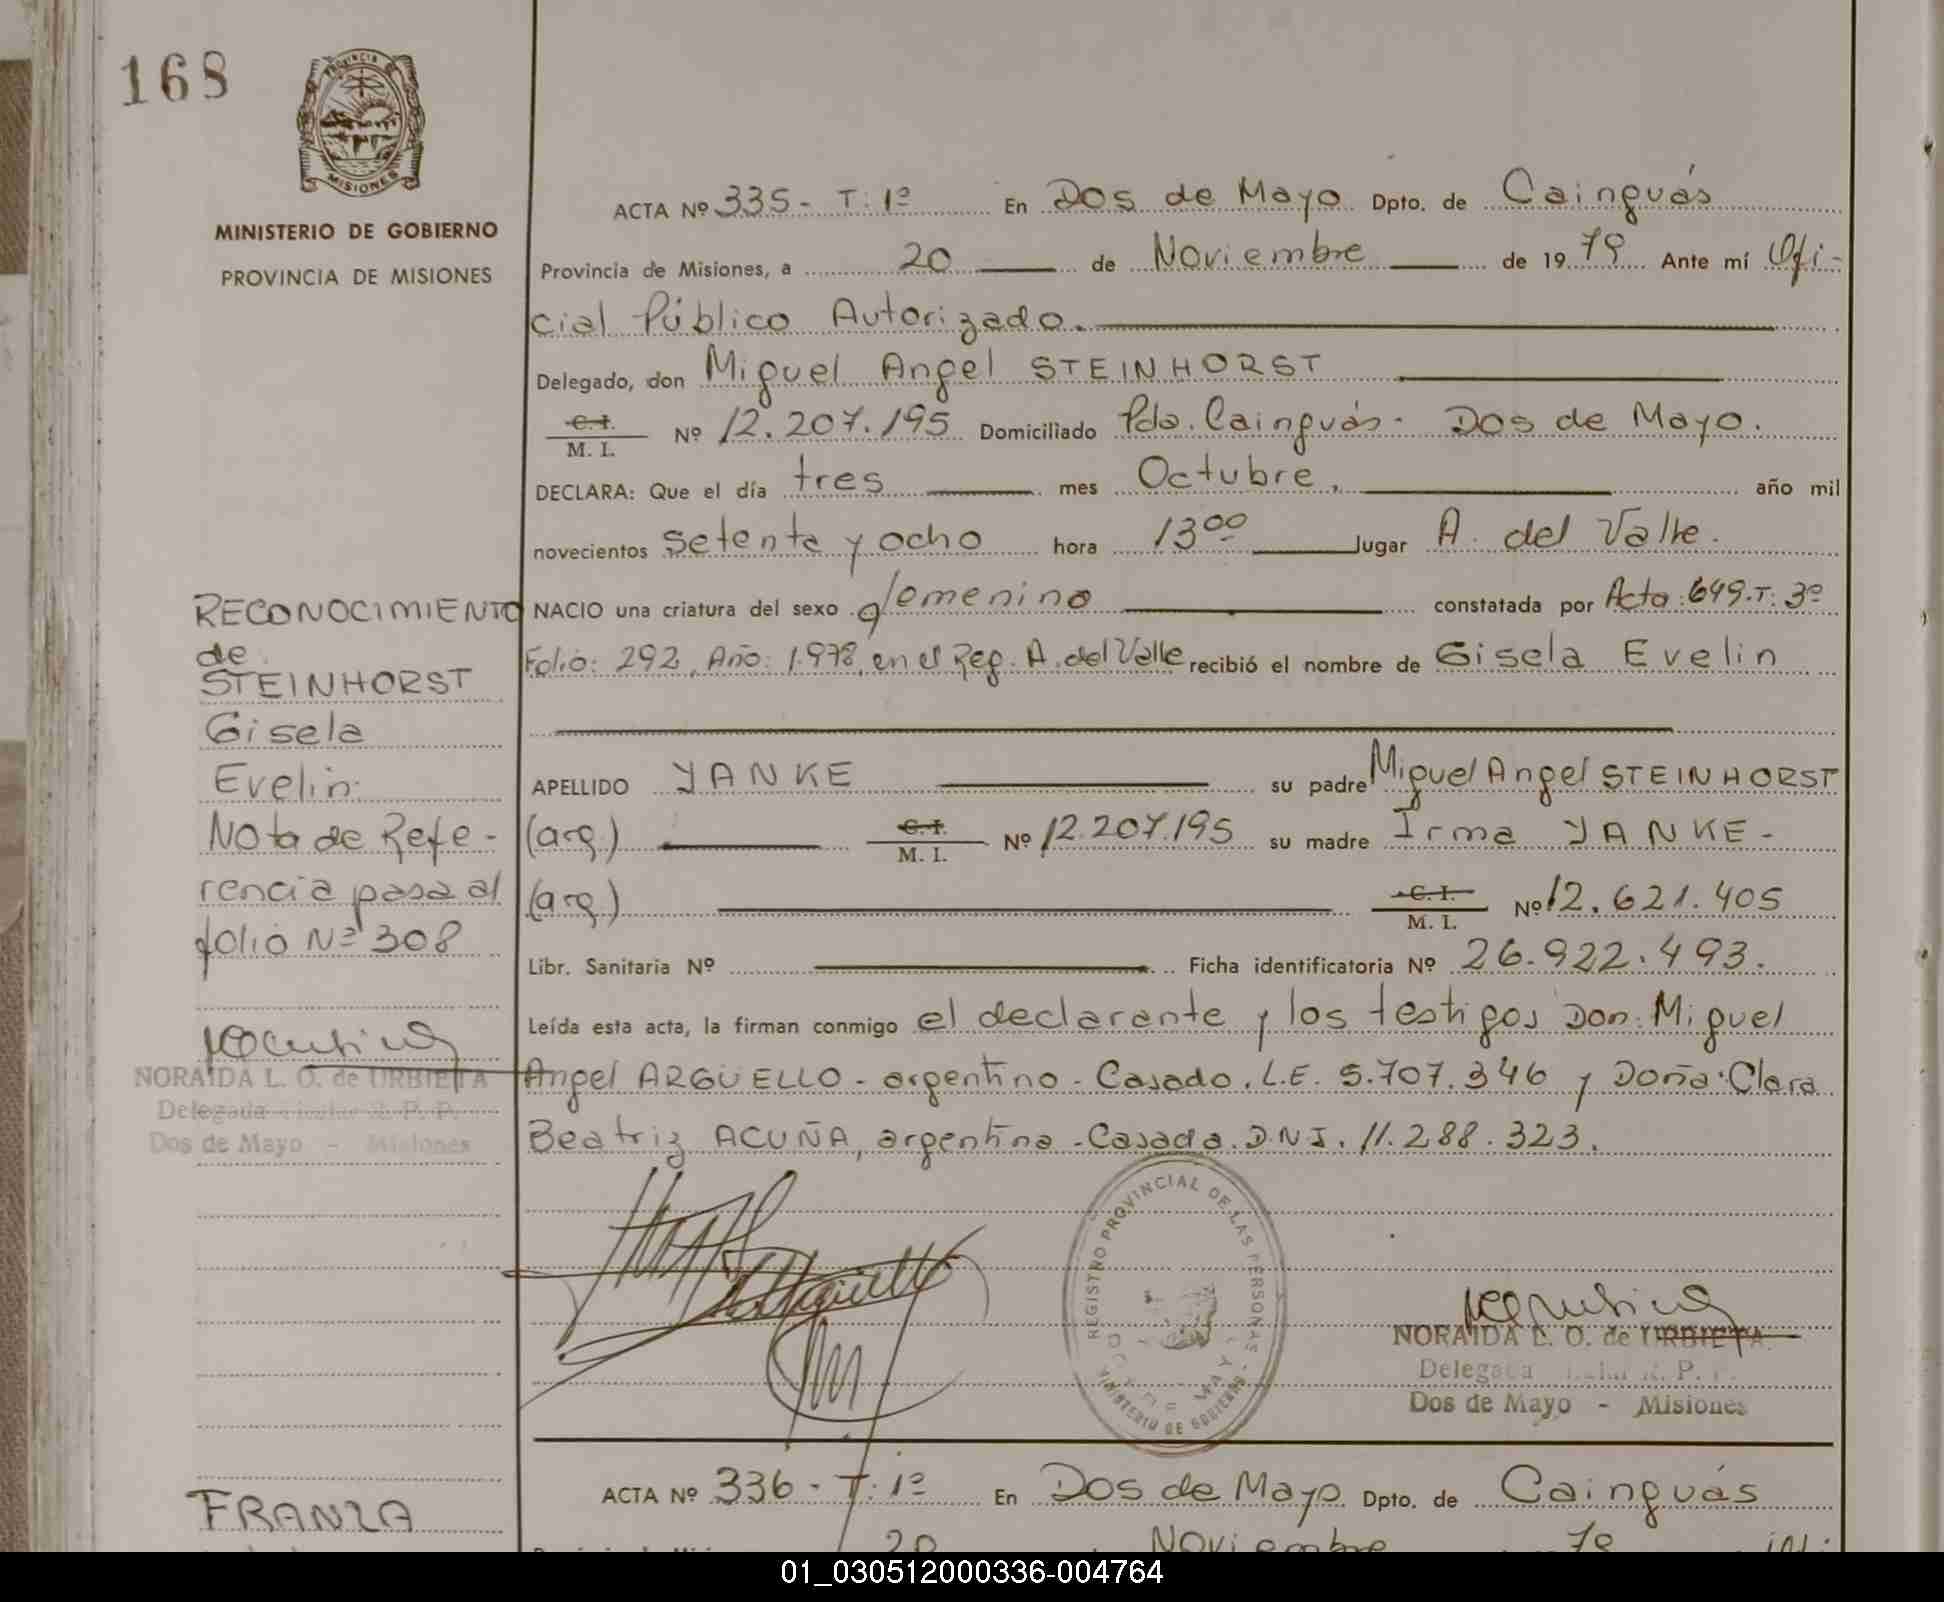 168
PROVINCIA DE
MISIONES
MINISTERIO DE GOBIERNO
PROVINCIA DE MISIONES
ACTA Nº 335- T: 1º En Dos de Mayo Dpto. de Cainguás
Provincia de Misiones, a 20 de Noviembre de 1979 Ante mí Ofi-
cial Público Autorizado.
Delegado, don Miguel Angel STEINHORST
C.I.
M. I. Nº 12.207.195 Domiciliado Pdo. Cainguás- Dos de Mayo.
DECLARA: Que el día tres mes Octubre, año mil
novecientos setenta y ocho hora 13ºº lugar A. del Valle.
NACIO una criatura del sexo femenino constatada por Acta 649.T: 3º
Folio: 292, Año: 1.978, en el Reg. A. del Valle recibió el nombre de Gisela Evelin
APELLIDO YANKE su padre Miguel Angel STEINHORST
(arg.) C.I.
M. I. Nº 12.207.195 su madre Irma YANKE-
(arg.) C.I.
M. I. Nº 12.621.405
Libr. Sanitaria Nº Ficha identificatoria Nº 26.922.493.
Leída esta acta, la firman conmigo el declarante y los testigos Don: Miguel
Angel ARGÜELLO - argentino - Casado. L.E. 5.707.346 y Doña: Clara
Beatriz ACUÑA, argentina - Casada. D.N.I. 11.288.323.
RECONOCIMIENTO
de
STEINHORST
Gisela
Evelin
Nota de Refe-
rencia pasa al
folio Nº 308
NORAIDA L. O. de URBIETA
Delegada R. P. P.
Dos de Mayo - Misiones
REGISTRO PROVINCIAL DE LAS PERSONAS
MINISTERIO DE GOBIERNO
NORAIDA L. O. de URBIETA
Delegada R. P.
Dos de Mayo - Misiones
ACTA Nº 336- T: 1º En Dos de Mayo Dpto. de Cainguás
FRANZA
20 Noviembre 79
01_030512000336-004764